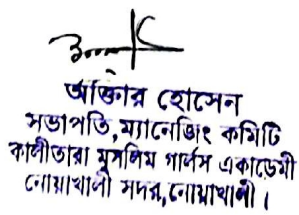 আক্তার হোসেন
সভাপতি, ম্যানেজিং কমিটি
কালীতারা মুসলিম গার্লস একাডেমী
নোয়াখালী সদর, নোয়াখালী।